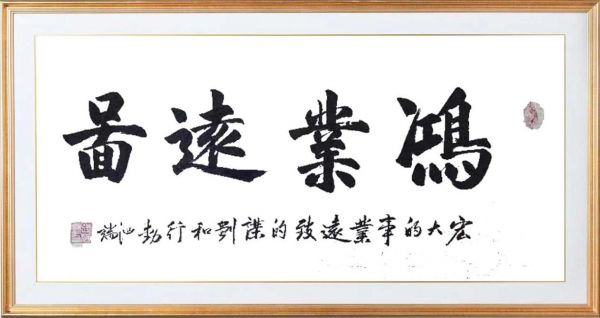 鴻業遠啚
宏大的事業遠致的謀劃和行動